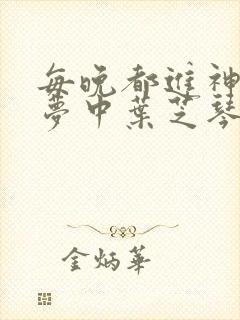 每晚都進神
夢中葉芝琴
金炳華